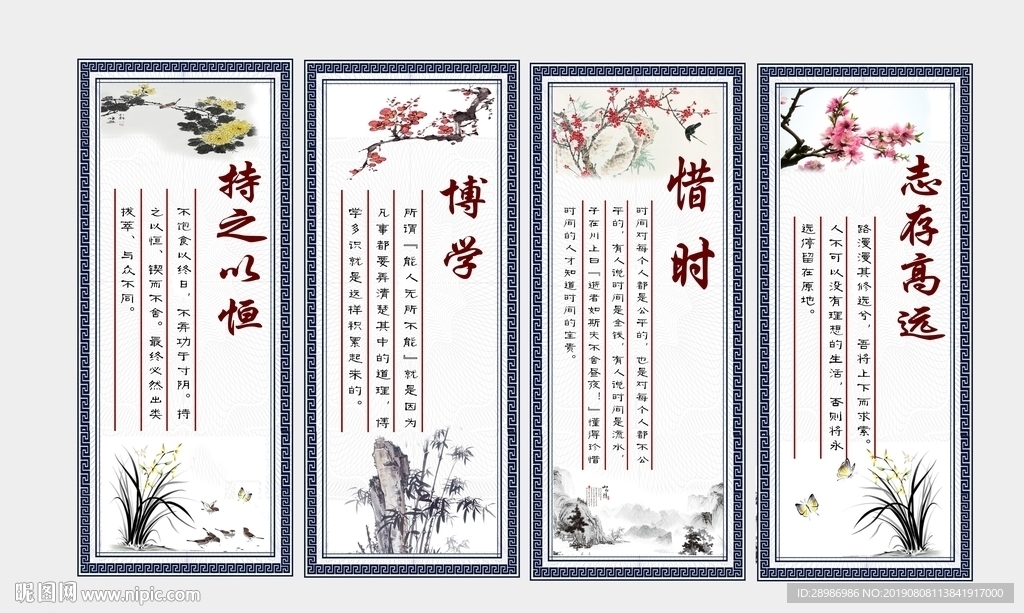 持之以恒
不饱食以终日，不弃功于寸阴。持
之以恒、锲而不舍。最终必然出类
拔萃、与众不同。
博学
所谓『能人无所不能』就是因为
凡事都要弄清楚其中的道理，博
学多识就是这样积累起来的。
惜时
时间对每个人都是公平的，也是对每个人都不公
平的，有人说时间是金钱，有人说时间是流水，
子在川上曰『逝者如斯夫不舍昼夜！』懂得珍惜
时间的人才知道时间的宝贵。
志存高远
路漫漫其修远兮，吾将上下而求索。
人不可以没有理想的生活，否则将永
远停留在原地。
昵图网 www.nipic.com
ID:28986986 NO:20190808113841917000